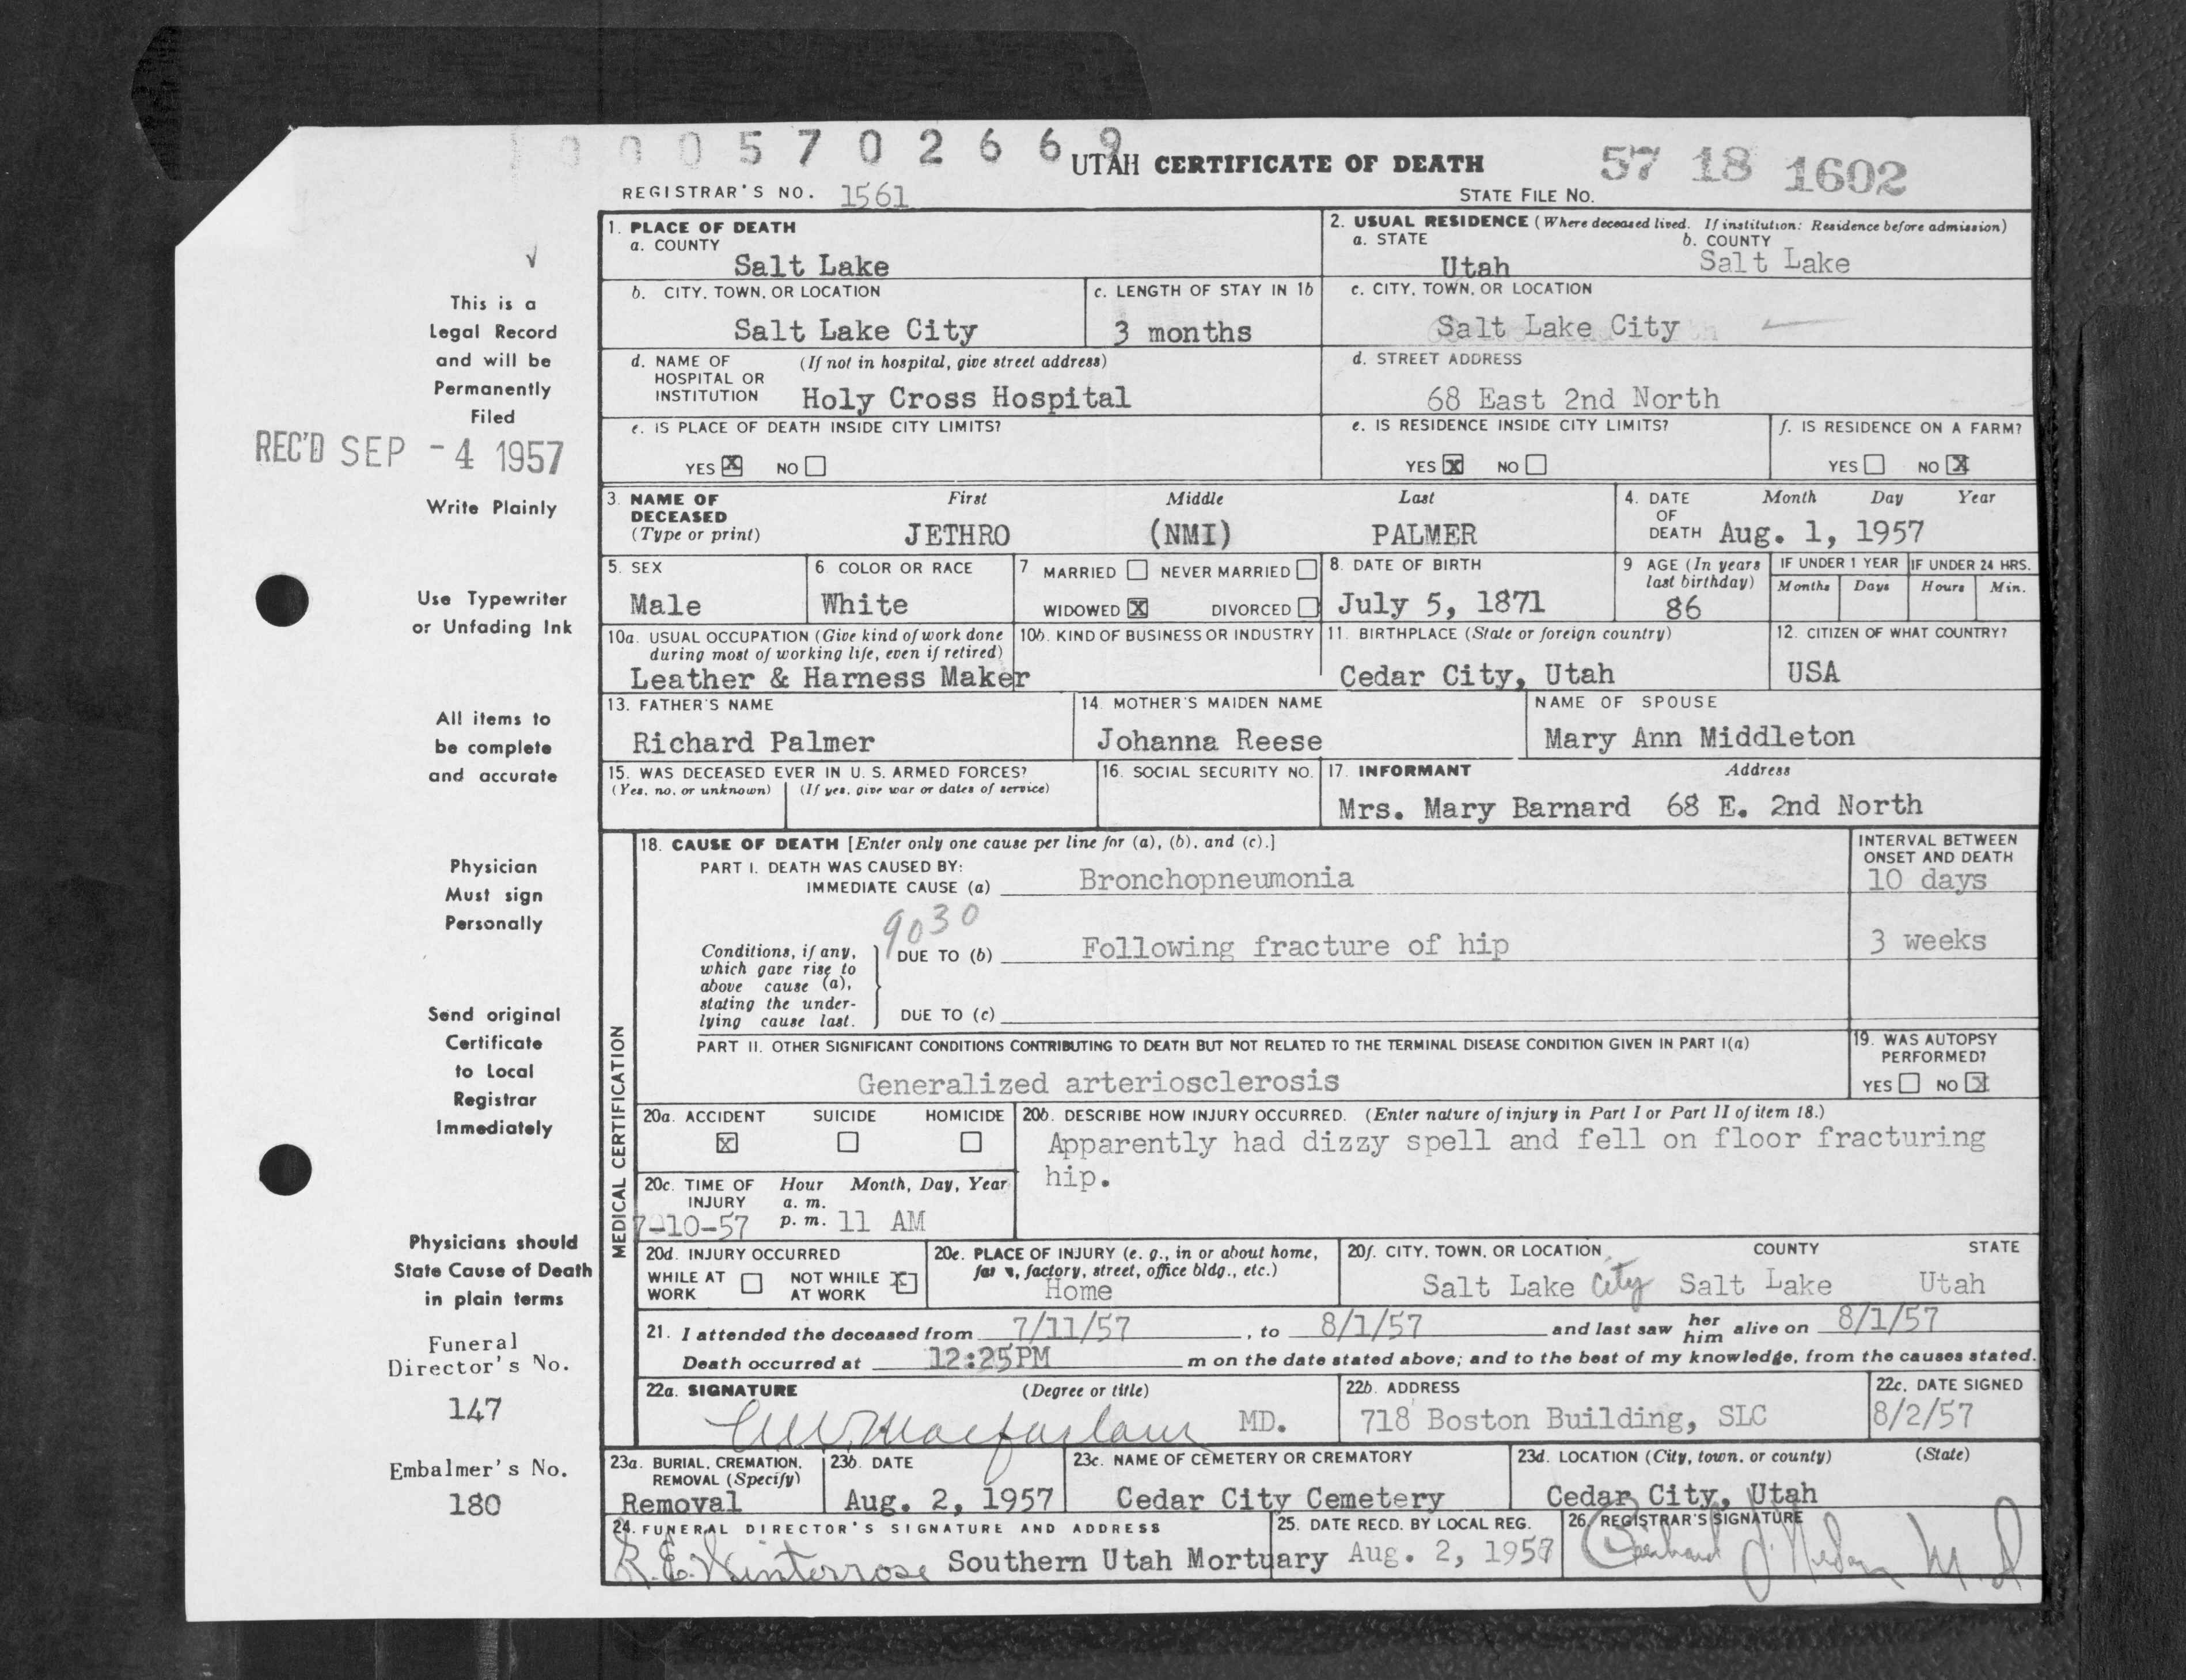 1 0 0 0 5 7 0 2 6 6 9
UTAH CERTIFICATE OF DEATH
57 18 1602
REGISTRAR'S NO. 1561
STATE FILE NO.
This is a
Legal Record
and will be
Permanently
Filed
REC'D SEP -4 1957
Write Plainly
Use Typewriter
or Unfading Ink
All items to
be complete
and accurate
Physician
Must sign
Personally
Send original
Certificate
to Local
Registrar
Immediately
Physicians should
State Cause of Death
in plain terms
Funeral
Director's No.
147
Embalmer's No.
180
1. PLACE OF DEATH
a. COUNTY
Salt Lake
2. USUAL RESIDENCE (Where deceased lived. If institution: Residence before admission)
a. STATE b. COUNTY
Utah Salt Lake
b. CITY, TOWN, OR LOCATION
Salt Lake City
c. LENGTH OF STAY IN 1b
3 months
c. CITY, TOWN, OR LOCATION
Salt Lake City
d. NAME OF (If not in hospital, give street address)
HOSPITAL OR
INSTITUTION Holy Cross Hospital
d. STREET ADDRESS
68 East 2nd North
e. IS PLACE OF DEATH INSIDE CITY LIMITS?
YES X NO
e. IS RESIDENCE INSIDE CITY LIMITS?
YES X NO
f. IS RESIDENCE ON A FARM?
YES NO X
3. NAME OF First Middle Last
DECEASED
(Type or print) JETHRO (NMI) PALMER
4. DATE Month Day Year
OF
DEATH Aug. 1, 1957
5. SEX
Male
6. COLOR OR RACE
White
7. MARRIED NEVER MARRIED
WIDOWED X DIVORCED
8. DATE OF BIRTH
July 5, 1871
9 AGE (In years
last birthday)
86
IF UNDER 1 YEAR IF UNDER 24 HRS.
Months Days Hours Min.
10a. USUAL OCCUPATION (Give kind of work done
during most of working life, even if retired)
Leather & Harness Maker
10b. KIND OF BUSINESS OR INDUSTRY
11. BIRTHPLACE (State or foreign country)
Cedar City, Utah
12. CITIZEN OF WHAT COUNTRY?
USA
13. FATHER'S NAME
Richard Palmer
14. MOTHER'S MAIDEN NAME
Johanna Reese
NAME OF SPOUSE
Mary Ann Middleton
15. WAS DECEASED EVER IN U. S. ARMED FORCES?
(Yes, no, or unknown) (If yes, give war or dates of service)
16. SOCIAL SECURITY NO.
17. INFORMANT Address
Mrs. Mary Barnard 68 E. 2nd North
MEDICAL CERTIFICATION
18. CAUSE OF DEATH [Enter only one cause per line for (a), (b), and (c).]
PART I. DEATH WAS CAUSED BY:
IMMEDIATE CAUSE (a) Bronchopneumonia
INTERVAL BETWEEN
ONSET AND DEATH
10 days
9030
Conditions, if any,
which gave rise to
above cause (a),
stating the under-
lying cause last.
DUE TO (b) Following fracture of hip
3 weeks
DUE TO (c)
PART II. OTHER SIGNIFICANT CONDITIONS CONTRIBUTING TO DEATH BUT NOT RELATED TO THE TERMINAL DISEASE CONDITION GIVEN IN PART I(a)
Generalized arteriosclerosis
19. WAS AUTOPSY
PERFORMED?
YES NO X
20a. ACCIDENT SUICIDE HOMICIDE
X
20b. DESCRIBE HOW INJURY OCCURRED. (Enter nature of injury in Part I or Part II of item 18.)
Apparently had dizzy spell and fell on floor fracturing
hip.
20c. TIME OF Hour Month, Day, Year
INJURY a. m.
7-10-57 p. m. 11 AM
20d. INJURY OCCURRED
WHILE AT NOT WHILE X
WORK AT WORK
20e. PLACE OF INJURY (e. g., in or about home,
farm, factory, street, office bldg., etc.)
Home
20f. CITY, TOWN, OR LOCATION COUNTY STATE
Salt Lake City Salt Lake Utah
21. I attended the deceased from 7/11/57, to 8/1/57 and last saw her him alive on 8/1/57
Death occurred at 12:25PM m on the date stated above; and to the best of my knowledge, from the causes stated.
22a. SIGNATURE (Degree or title)
Macfarlane MD.
22b. ADDRESS
718 Boston Building, SLC
22c. DATE SIGNED
8/2/57
23a. BURIAL, CREMATION,
REMOVAL (Specify)
Removal
23b. DATE
Aug. 2, 1957
23c. NAME OF CEMETERY OR CREMATORY
Cedar City Cemetery
23d. LOCATION (City, town, or county) (State)
Cedar City, Utah
24. FUNERAL DIRECTOR'S SIGNATURE AND ADDRESS
R.E. Winterrose Southern Utah Mortuary
25. DATE RECD. BY LOCAL REG.
Aug. 2, 1957
26. REGISTRAR'S SIGNATURE
M.D.